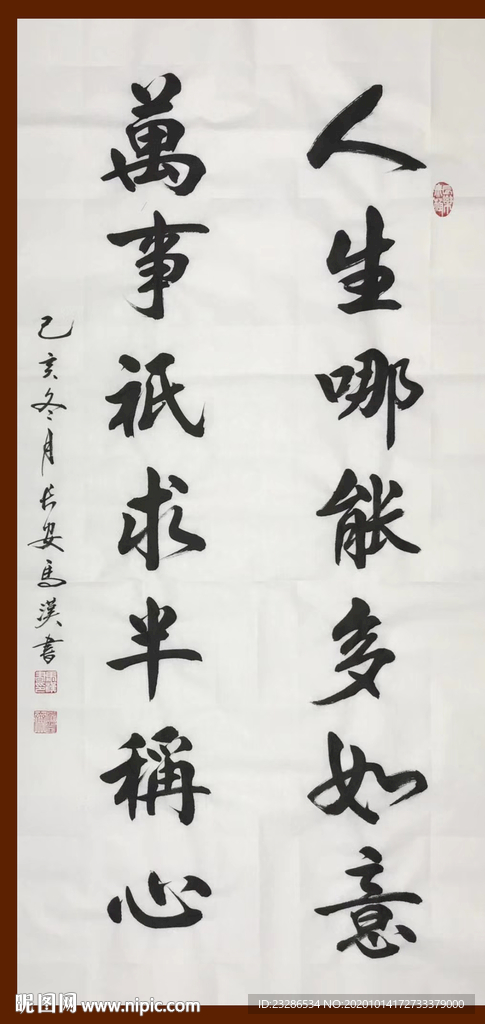 人生哪能多如意
萬事祇求半稱心
己亥冬月長安馬漢書
昵图网 www.nipic.com
ID:23286534 NO:20201014172733379000